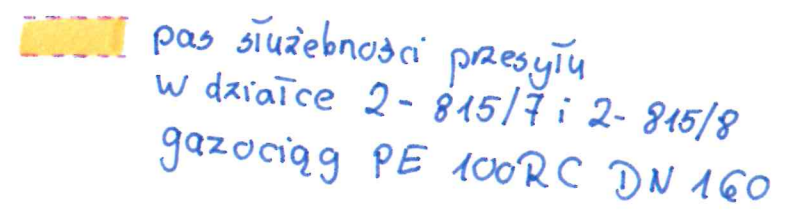 pas służebności przesyłu
w działce 2-815/7 i 2-815/8
gazociąg PE 100RC DN 160